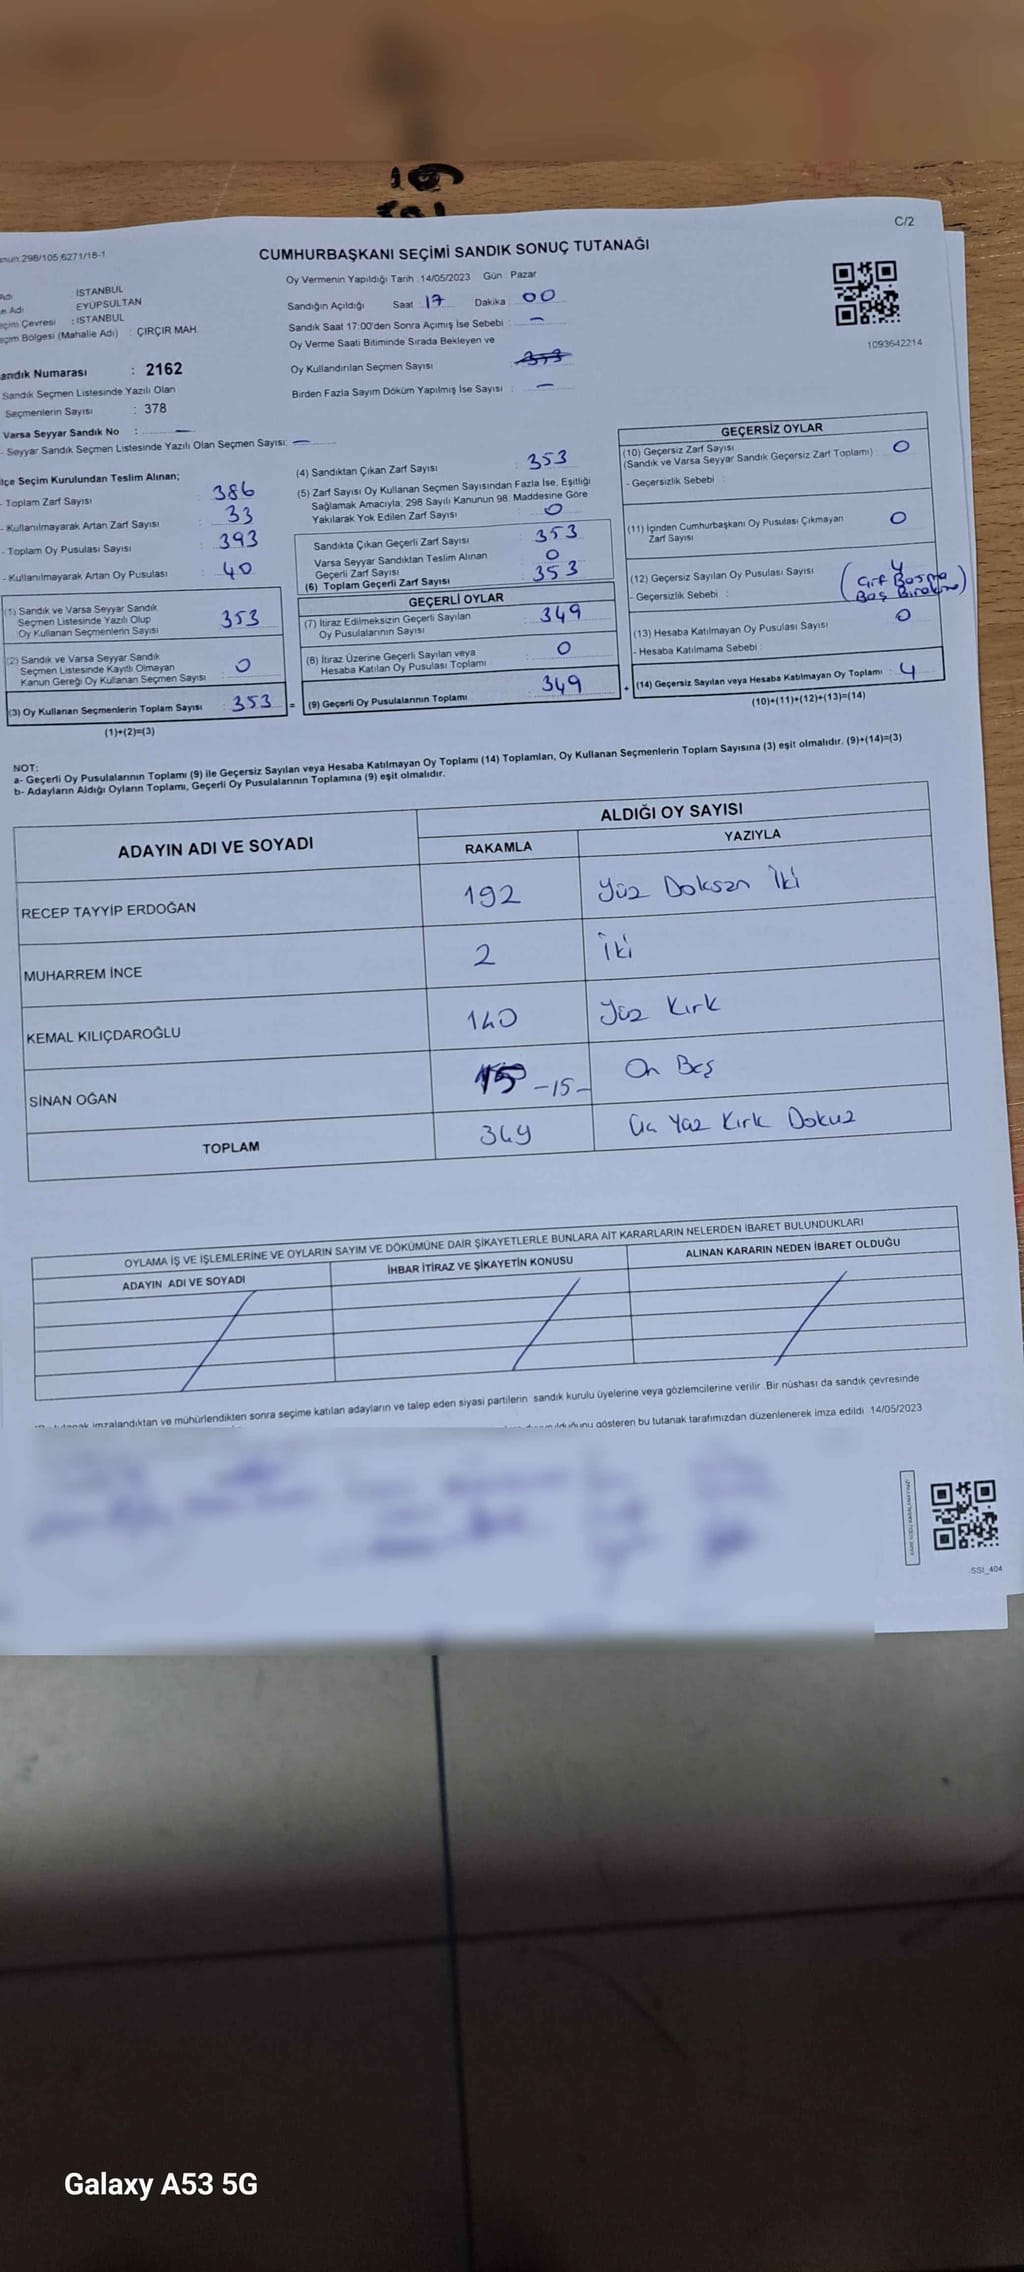 C/2
298/105 6271/18-1
CUMHURBAŞKANI SEÇİMİ SANDIK SONUÇ TUTANAĞI
Oy Vermenin Yapıldığı Tarih : 14/05/2023 Gün : Pazar
Adı İSTANBUL
Adı EYÜPSULTAN
Çevresi : İSTANBUL
Bölgesi (Mahalle Adı) : ÇIRÇIR MAH.
Sandığın Açıldığı Saat 17 Dakika 00
Sandık Saat 17:00'den Sonra Açımış İse Sebebi : —
Oy Verme Saati Bitiminde Sırada Bekleyen ve
Oy Kullandırılan Seçmen Sayısı : 353
Birden Fazla Sayım Döküm Yapılmış İse Sayısı : —
1093642214
andık Numarası : 2162
Sandık Seçmen Listesinde Yazılı Olan
Seçmenlerin Sayısı : 378
Varsa Seyyar Sandık No : —
- Seyyar Sandık Seçmen Listesinde Yazılı Olan Seçmen Sayısı: —
lçe Seçim Kurulundan Teslim Alınan;
- Toplam Zarf Sayısı : 386
- Kullanılmayarak Artan Zarf Sayısı : 33
- Toplam Oy Pusulası Sayısı : 393
- Kullanılmayarak Artan Oy Pusulası : 40
(1) Sandık ve Varsa Seyyar Sandık
Seçmen Listesinde Yazılı Olup
Oy Kullanan Seçmenlerin Sayısı : 353
(2) Sandık ve Varsa Seyyar Sandık
Seçmen Listesinde Kayıtlı Olmayan
Kanun Gereği Oy Kullanan Seçmen Sayısı : 0
(3) Oy Kullanan Seçmenlerin Toplam Sayısı : 353 =
(1)+(2)=(3)
(4) Sandıktan Çıkan Zarf Sayısı : 353
(5) Zarf Sayısı Oy Kullanan Seçmen Sayısından Fazla İse, Eşitliği
Sağlamak Amacıyla, 298 Sayılı Kanunun 98. Maddesine Göre
Yakılarak Yok Edilen Zarf Sayısı : 0
Sandıkta Çıkan Geçerli Zarf Sayısı : 353
Varsa Seyyar Sandıktan Teslim Alınan
Geçerli Zarf Sayısı : 0
(6) Toplam Geçerli Zarf Sayısı : 353
GEÇERLİ OYLAR
(7) İtiraz Edilmeksizin Geçerli Sayılan
Oy Pusulalarının Sayısı : 349
(8) İtiraz Üzerine Geçerli Sayılan veya
Hesaba Katılan Oy Pusulası Toplamı : 0
(9) Geçerli Oy Pusulalarının Toplamı : 349 +
GEÇERSİZ OYLAR
(10) Geçersiz Zarf Sayısı
(Sandık ve Varsa Seyyar Sandık Geçersiz Zarf Toplamı) : 0
- Geçersizlik Sebebi :
(11) İçinden Cumhurbaşkanı Oy Pusulası Çıkmayan
Zarf Sayısı : 0
(12) Geçersiz Sayılan Oy Pusulası Sayısı : 4
- Geçersizlik Sebebi : (Çift Basma
Boş Bırakma)
(13) Hesaba Katılmayan Oy Pusulası Sayısı : 0
- Hesaba Katılmama Sebebi :
(14) Geçersiz Sayılan veya Hesaba Katılmayan Oy Toplamı : 4
(10)+(11)+(12)+(13)=(14)
NOT:
a- Geçerli Oy Pusulalarının Toplamı (9) ile Geçersiz Sayılan veya Hesaba Katılmayan Oy Toplamı (14) Toplamları, Oy Kullanan Seçmenlerin Toplam Sayısına (3) eşit olmalıdır. (9)+(14)=(3)
b- Adayların Aldığı Oyların Toplamı, Geçerli Oy Pusulalarının Toplamına (9) eşit olmalıdır.
ADAYIN ADI VE SOYADI
ALDIĞI OY SAYISI
RAKAMLA YAZIYLA
RECEP TAYYİP ERDOĞAN 192 Yüz Doksan İki
MUHARREM İNCE 2 İki
KEMAL KILIÇDAROĞLU 140 Yüz Kırk
SİNAN OĞAN 15 -15- On Beş
TOPLAM 349 Üç Yüz Kırk Dokuz
OYLAMA İŞ VE İŞLEMLERİNE VE OYLARIN SAYIM VE DÖKÜMÜNE DAİR ŞİKAYETLERLE BUNLARA AİT KARARLARIN NELERDEN İBARET BULUNDUKLARI
ADAYIN ADI VE SOYADI İHBAR İTİRAZ VE ŞİKAYETİN KONUSU ALINAN KARARIN NEDEN İBARET OLDUĞU
tutanak imzalandıktan ve mühürlendikten sonra seçime katılan adayların ve talep eden siyasi partilerin sandık kurulu üyelerine veya gözlemcilerine verilir. Bir nüshası da sandık çevresinde
gösteren bu tutanak tarafımızdan düzenlenerek imza edildi. 14/05/2023
SSI_404
Galaxy A53 5G